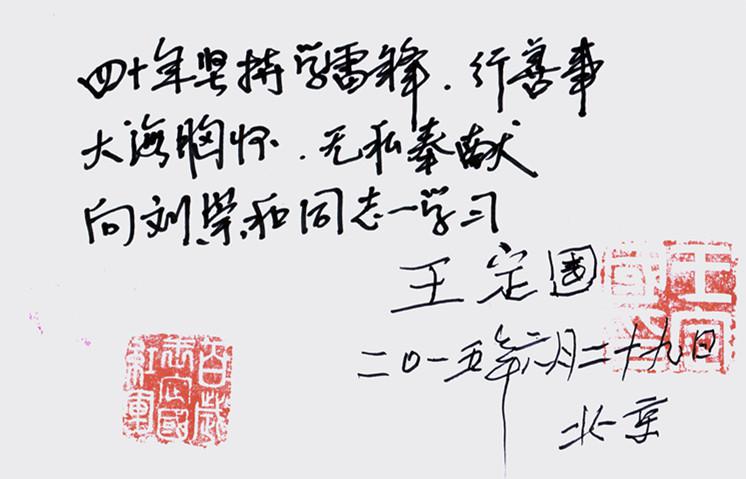 四十年坚持学雷锋.行善事
大海胸怀.无私奉献
向刘和同志一学习
王定国
二〇一五年六月二十九日
北京
王定
國印
百歲
定國
紅軍